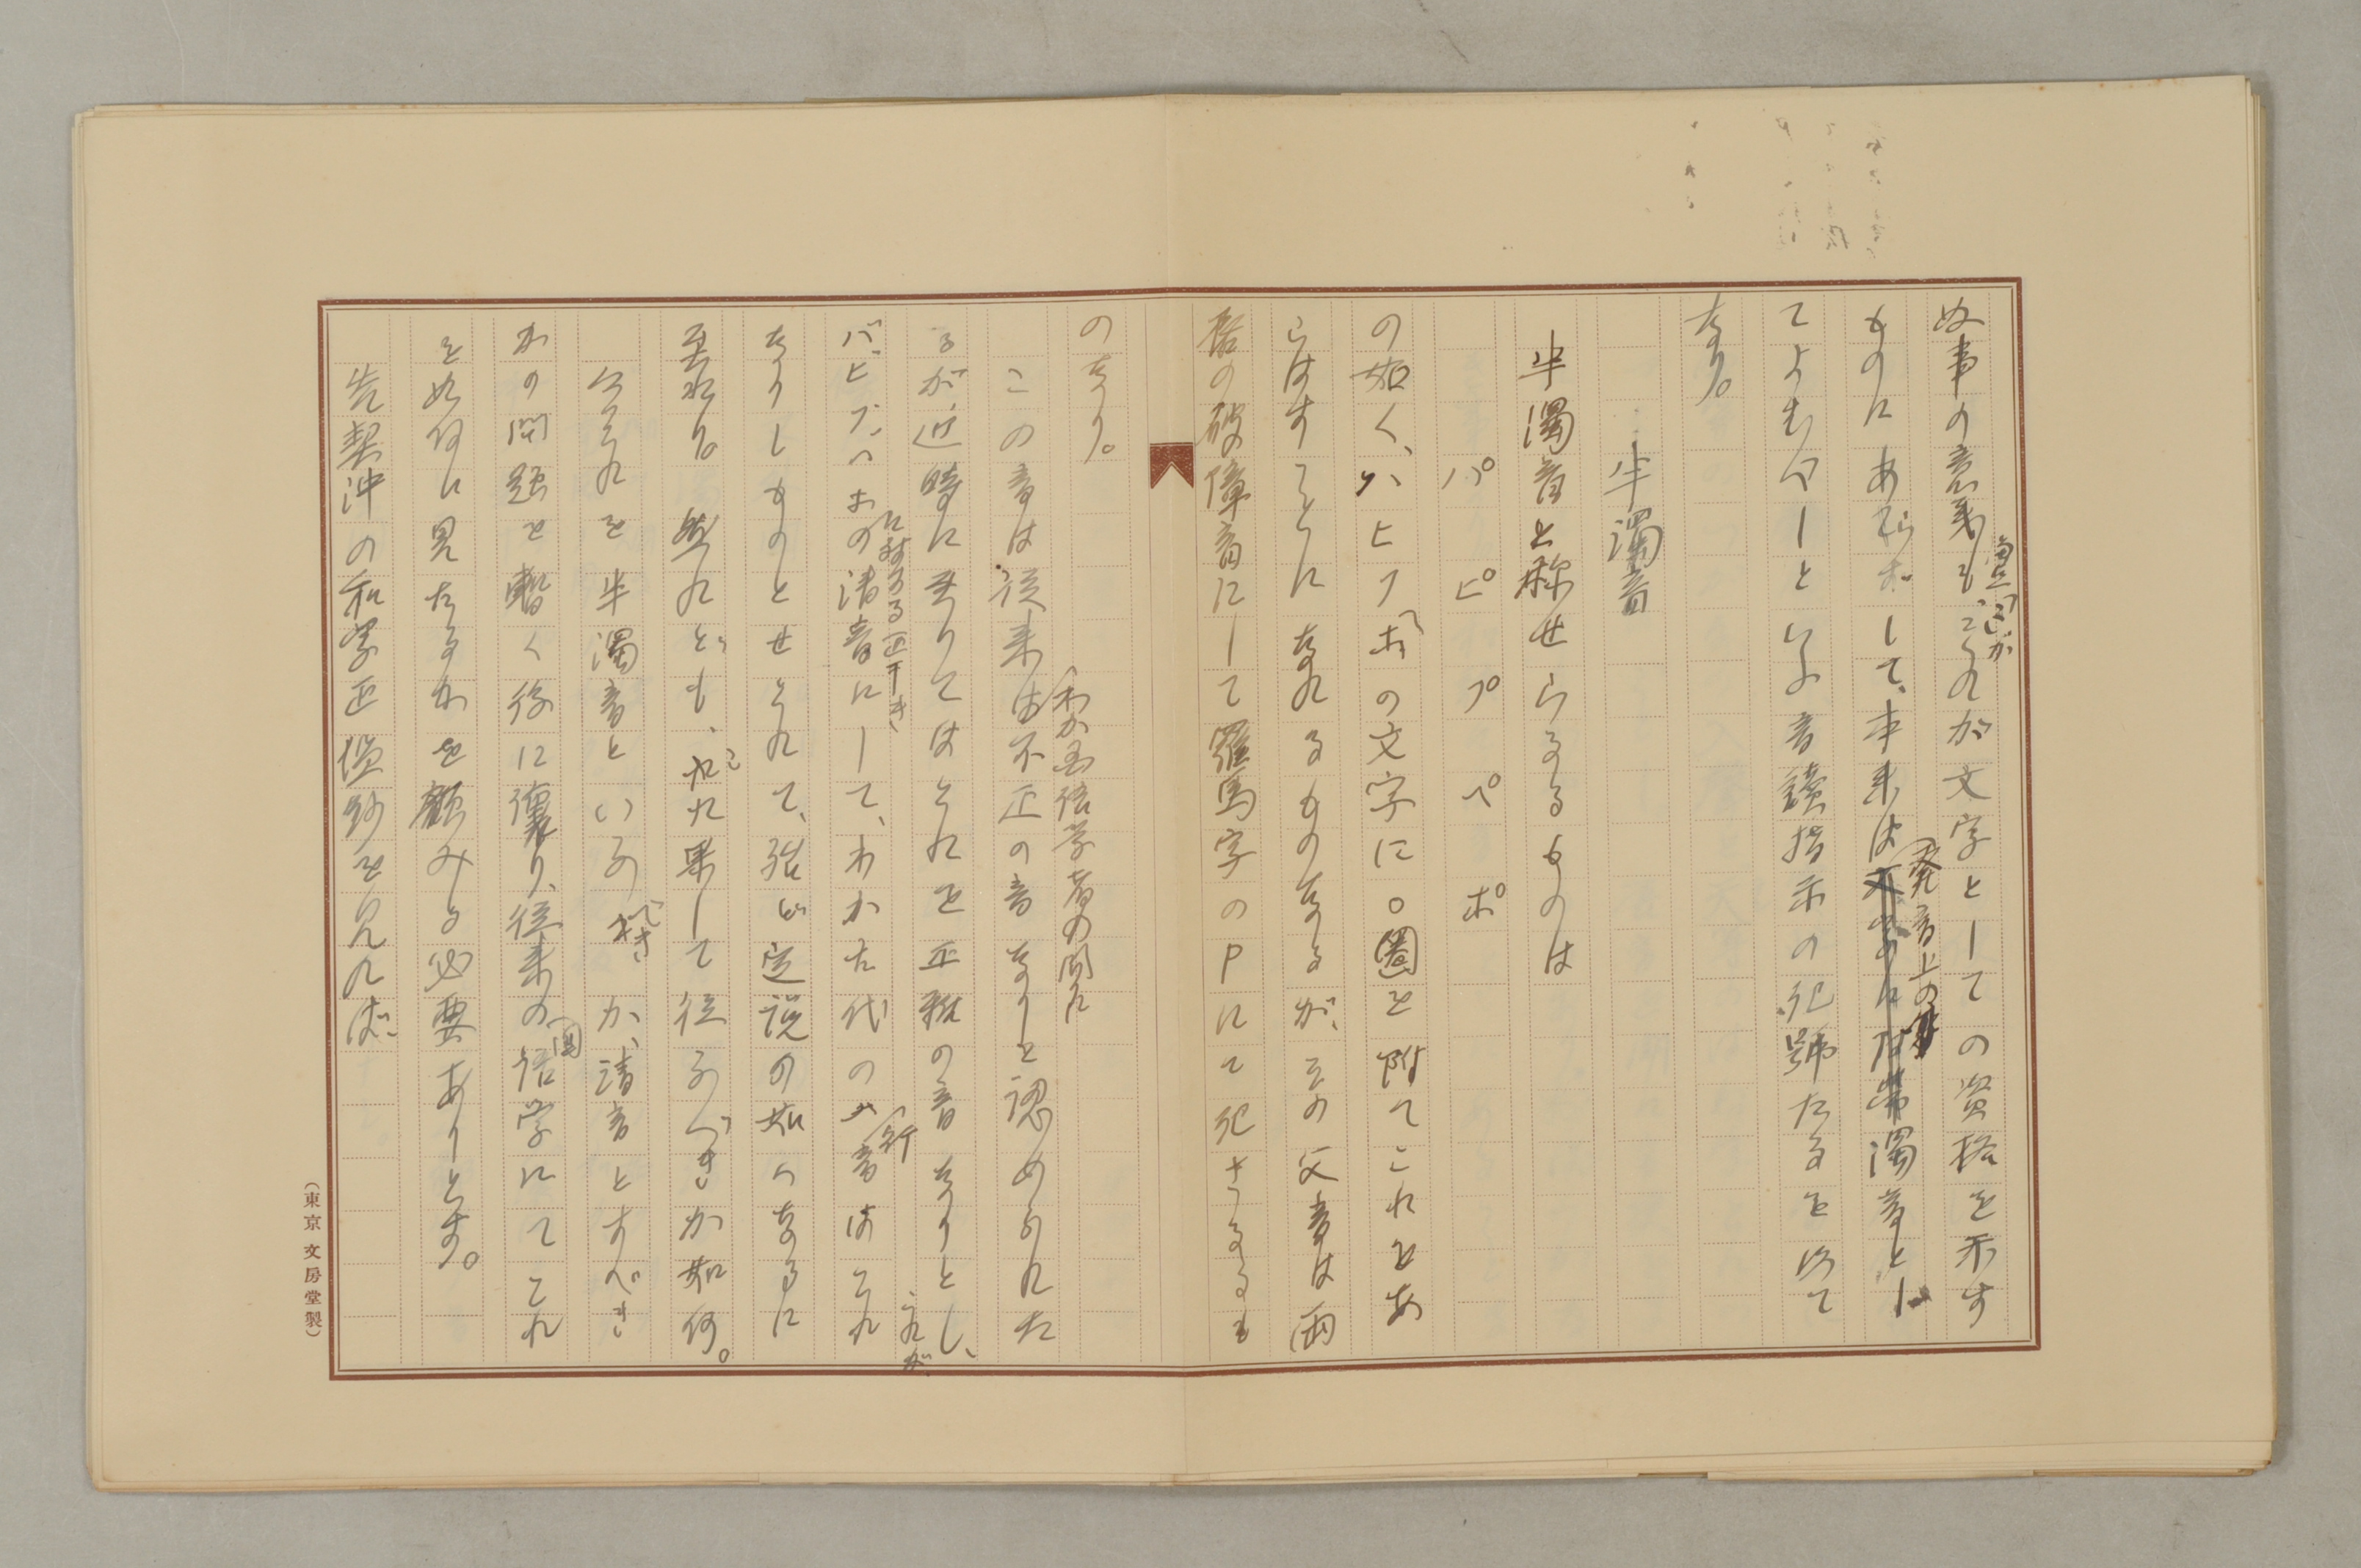 ぬ事の意義も、これが文字としての資格を示す
ものにあらずして、本来は発音上の濁音とし
てよむべしといふ音讀指示の記號たるを以て
なり。
半濁音
半濁音と稱せらるるものは
パ ピ プ ペ ポ
の如く、ハヒフヘホの文字に○圏を附てこれをあ
らはすことになれるものなるが、その父音は兩
唇の破障音にして羅馬字のPにて記さるるも
のなり。
この音は従来わが国語学者の間に不正の音なりと認められた
るが、近時に至りてはそれを正雅の音なりとし、
バビブベボに対する正しき清音にして、わが古代のハ行音はこれ
なりしものとせられて、殆ど定説の如くなるに
至れり。然れども、これ果して従ふべきか如何。
今それを半濁音といふべきか、清音とすべき
かの問題を暫く後に讓り、従来の国語学にてこれ
を如何に見たるかを顧みる必要ありとす。
先契沖の和字正濫鈔を見れば
(東京 文房堂製)